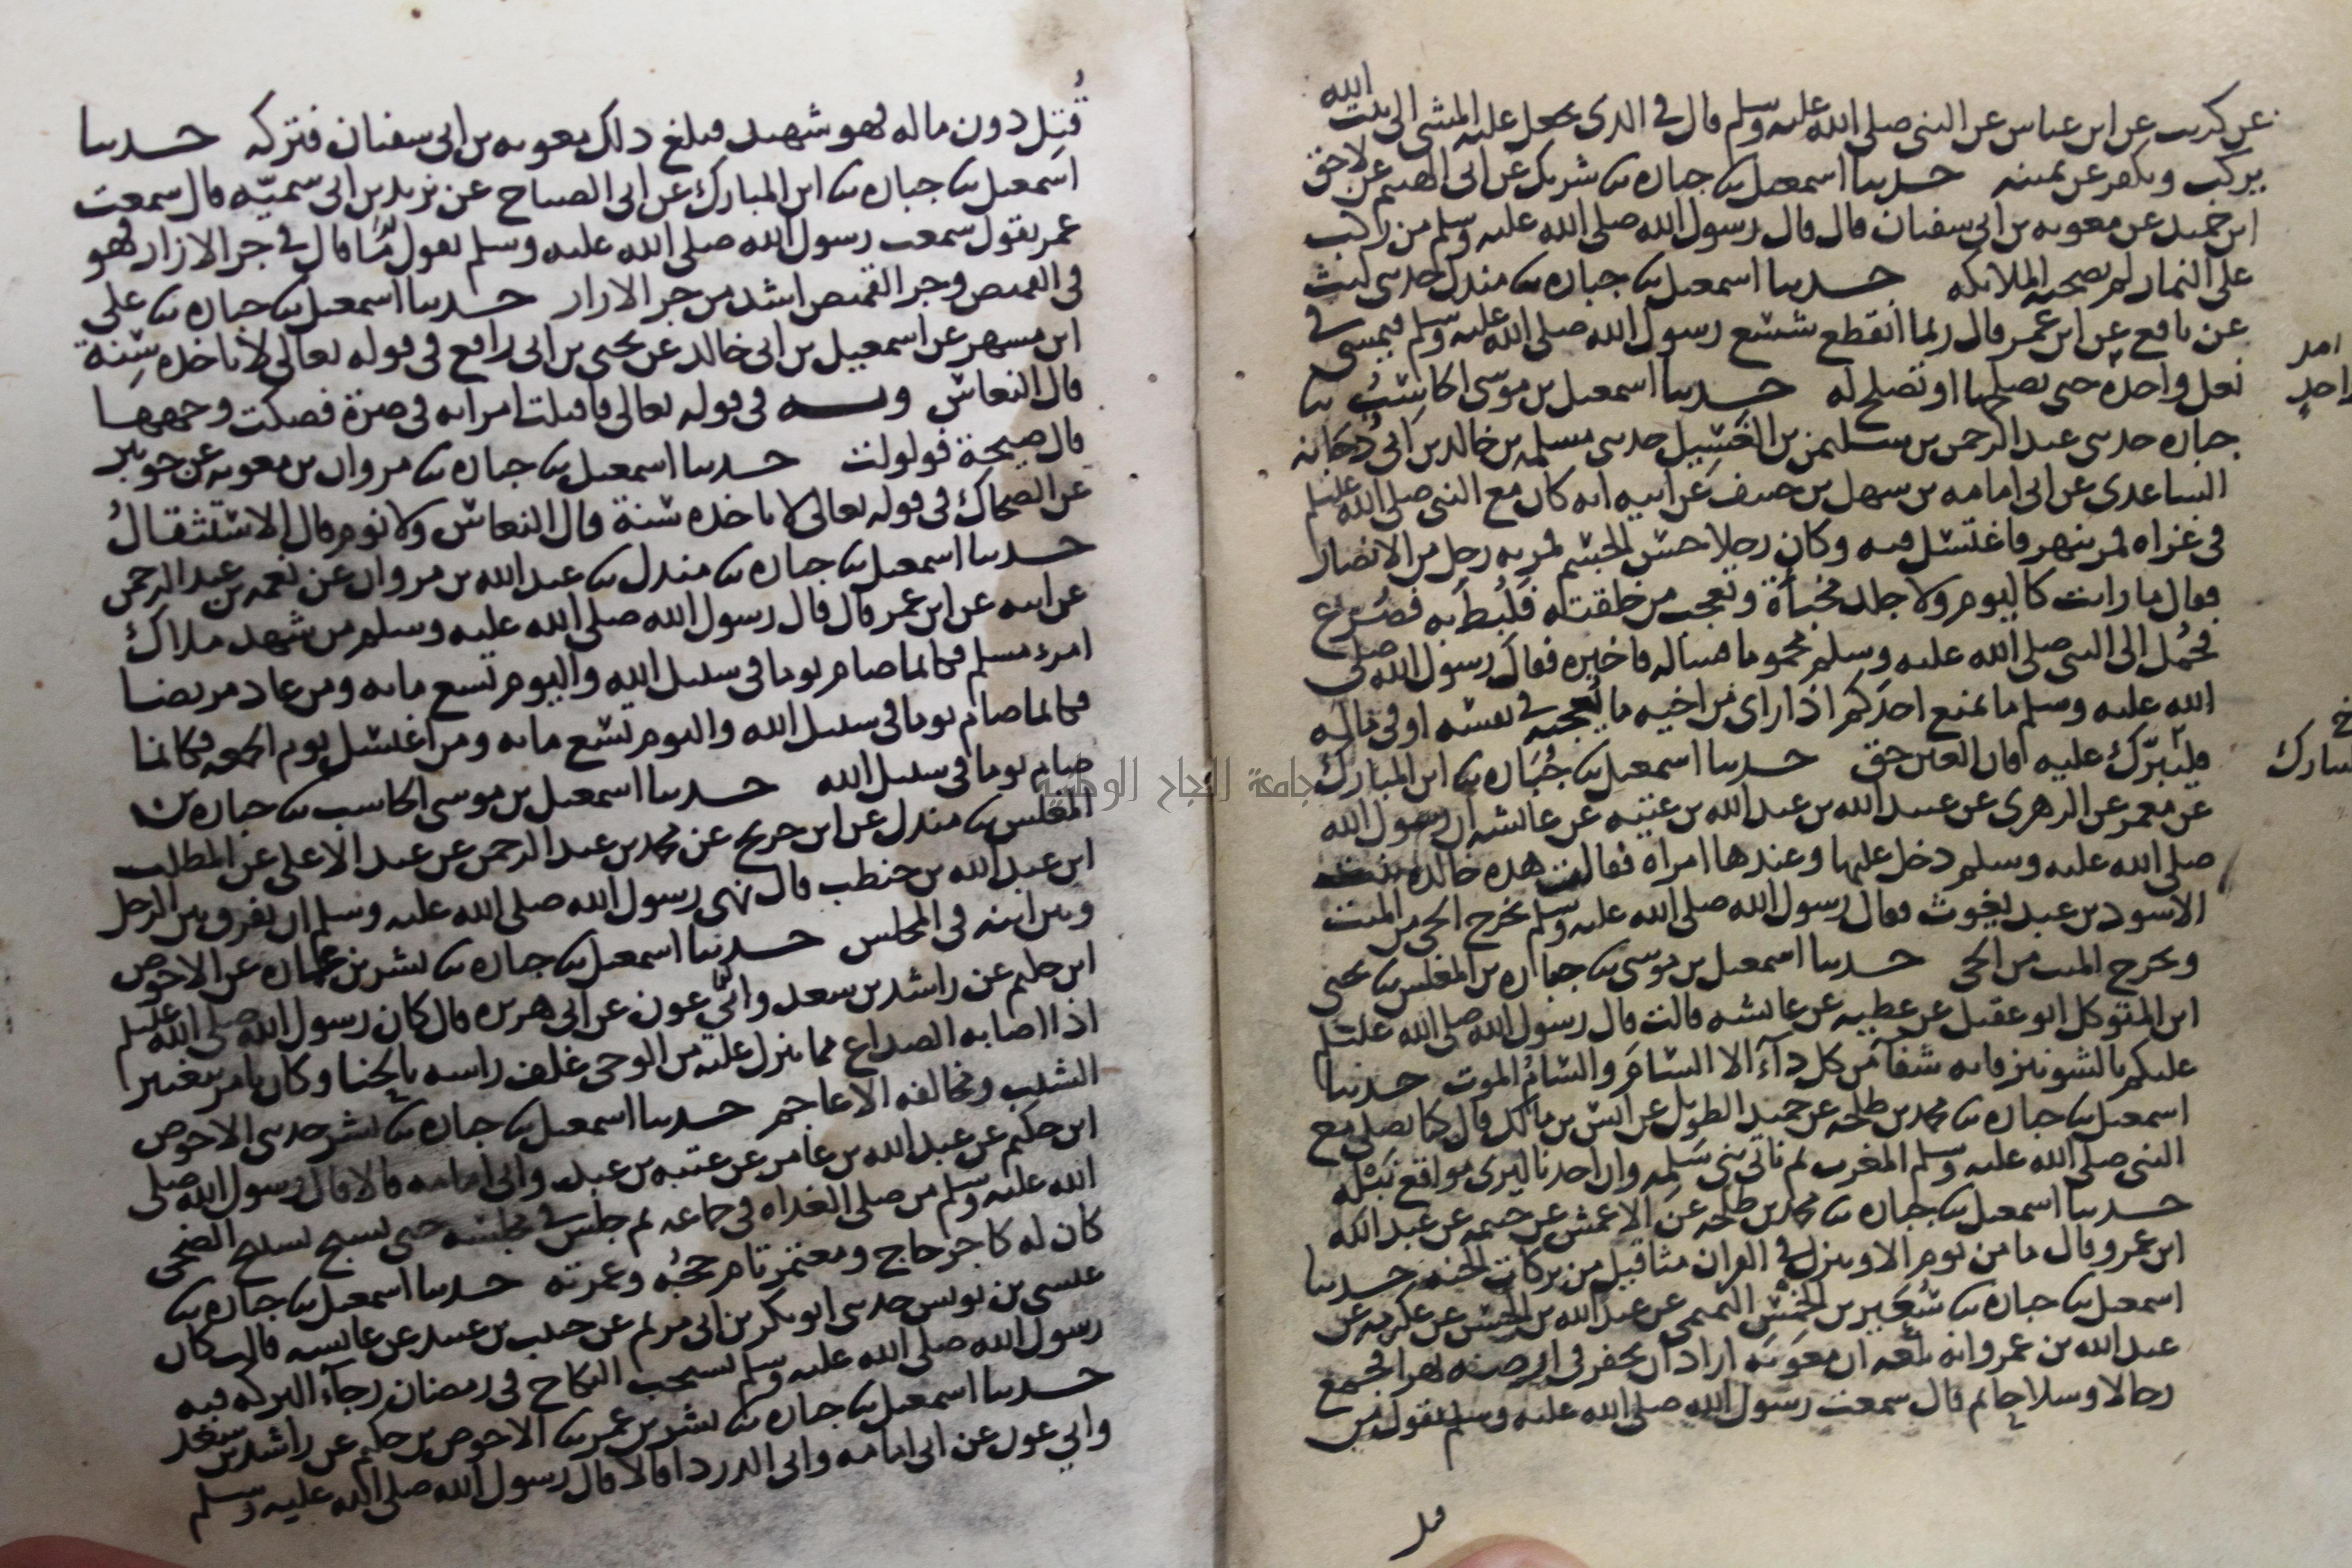 عن كريب عن ابن عباس عن النبي صلى الله عليه وسلم قال في الذي يجعل عليه المشي الى بيت الله
يركب ويكفر عن يمينه حدثنا اسمعيل ثنا جباره ثنا شريك عن ابي الهيثم عن لاحق
ابن حميد عن معويه بن ابي سفيان قال قال رسول الله صلى الله عليه وسلم من ركب
على النمار لم تصحبه الملائكه حدثنا اسمعيل ثنا جباره ثنا مندل حدثني ليث
عن نافع عن ابن عمر قال ربما انقطع شسع رسول الله صلى الله عليه وسلم فيمشي في
نعل واحده حتى يصلحها او تصلح له حدثنا اسمعيل بن موسى الحاسب ثنا
جباره حدثني عبد الرحمن بن سليمن بن الغسيل حدثني مسلمه بن خالد بن ابي دجانه
الساعدي عن ابي امامه بن سهل بن حنيف عن ابيه انه كان مع النبي صلى الله عليه وسلم
في غزاه فمر بنهر فاغتسل فيه وكان رجلا حسن الجسم فمر به رجل من الانصار
فقال ما رايت كاليوم ولا جلد مخبأة وتعجب من خلقته فلبط به فصرع
فحمل الى النبي صلى الله عليه وسلم محموما فساله فاخبره فقال رسول الله صلى
الله عليه وسلم ما يمنع احدكم اذا راى من اخيه ما يعجبه في نفسه او في ماله
فليبرك عليه فان العين حق حدثنا اسمعيل ثنا جباره ثنا ابن المبارك
عن معمر عن الزهري عن عبيد الله بن عبد الله بن عتبه عن عائشه ان رسول الله
صلى الله عليه وسلم دخل عليها وعندها امراه فقالت هذه خالده بنت
الاسود بن عبد يغوث فقال رسول الله صلى الله عليه وسلم يخرج الحي من الميت
ويخرج الميت من الحي حدثنا اسمعيل بن موسى ثنا جباره بن المغلس ثنا يحيى
ابن المتوكل ابو عقيل عن عطيه عن عائشه قالت قال رسول الله صلى الله عليه وسلم
عليكم بالشونيز فانه شفآ من كل دآء الا السام والسام الموت حدثنا
اسمعيل ثنا جباره ثنا محمد بن طلحه عن حميد الطويل عن انس بن مالك قال كنا نصلي مع
النبي صلى الله عليه وسلم المغرب ثم ناتي بني سلمه وان احدنا ليرى مواقع نبله
حدثنا اسمعيل ثنا جباره ثنا محمد بن طلحه عن الاعمش عن خيثمه عن عبد الله
ابن عمرو قال ما من يوم الا وينزل في الفرات مثاقيل من بركات الجنه حدثنا
اسمعيل ثنا جباره ثنا شعير بن الخمس التميمي عن عبد الله بن الحسن عن عكرمه عن
عبد الله بن عمرو انه بلغه ان معويه اراد ان يحفر في ارضه نهرا فجمع
رجالا وسلاحا ثم قال سمعت رسول الله صلى الله عليه وسلم يقول من
قتل دون ماله فهو شهيد فبلغ ذلك معويه بن ابي سفيان فتركه حدثنا
اسمعيل ثنا جباره ثنا ابن المبارك عن ابي الصباح عن يزيد بن ابي سميه قال سمعت
عمر يقول سمعت رسول الله صلى الله عليه وسلم يقول ما قال في جر الازار فهو
في القميص وجر القميص اشد من جر الازار حدثنا اسمعيل ثنا جباره ثنا علي
ابن مسهر عن اسمعيل بن ابي خالد عن يحيى بن ابي رافع في قوله تعالى لا تاخذه سنة
قال النعاس وبه في قوله تعالى فاقبلت امراته في صرة فصكت وجهها
قال صيحة فولولت حدثنا اسمعيل ثنا جباره ثنا مروان بن معويه عن جويبر
عن الضحاك في قوله تعالى لا تاخذه سنة قال النعاس ولا نوم قال الاستثقال
حدثنا اسمعيل ثنا جباره ثنا مندل ثنا عبد الله بن مروان عن نعمه بن عبد الرحمن
عن ابيه عن ابن عمر قال قال رسول الله صلى الله عليه وسلم من شهد ملاك
امرء مسلم فكانما صام يوما في سبيل الله واليوم تسع مايه ومن عاد مريضا
فكانما صام يوما في سبيل الله واليوم تسع مايه ومن اغتسل يوم الجمعه فكانما
صام يوما في سبيل الله حدثنا اسمعيل بن موسى الحاسب ثنا جباره بن
المغلس ثنا مندل عن ابن جريج عن محمد بن عبد الرحمن عن عبد الاعلى عن المطلب
ابن عبد الله بن حنطب قال نهى رسول الله صلى الله عليه وسلم ان يفرق بين الرجل
وبين ابنه في المجلس حدثنا اسمعيل ثنا جباره ثنا بشر بن عماره عن الاحوص
ابن حكيم عن راشد بن سعد وابي عون عن ابي هريره قال كان رسول الله صلى الله عليه وسلم
اذا اصابه الصداع مما ينزل عليه من الوحي غلف راسه بالحنا وكان يامر بتغيير
الشيب ومخالفه الاعاجم حدثنا اسمعيل ثنا جباره ثنا بشر حدثني الاحوص
ابن حكيم عن عبد الله بن عامر عن عتبه بن عبد وابي امامه قالا قال رسول الله صلى
الله عليه وسلم من صلى الغداه في جماعه ثم جلس في مجلسه حتى يسبح تسبيح الضحى
كان له كاجر حاج ومعتمر تام حجه وعمرته حدثنا اسمعيل ثنا جباره ثنا
عيسى بن يونس حدثني ابو بكر بن ابي مريم عن حبيب بن عبيد عن عائشه قالت كان
رسول الله صلى الله عليه وسلم يستحب النكاح في رمضان رجآء البركه فيه
حدثنا اسمعيل ثنا جباره ثنا بشر بن عمير ثنا الاحوص بن حكيم عن راشد بن سعد
وابي عون عن ابي امامه وابي الدردا قالا قال رسول الله صلى الله عليه وسلم
جامعة النجاح الوطنية